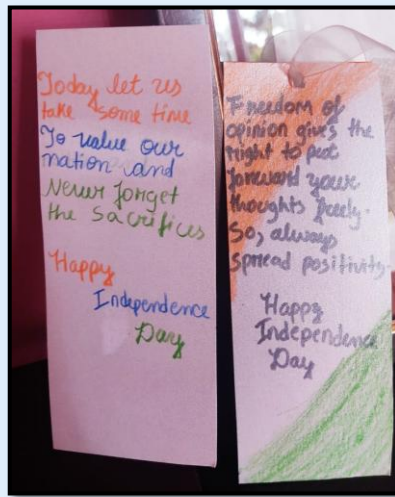 Today let us
take some time
To value our
nation and
Never forget
the sacrifices
Happy
Independence
Day
Freedom of
opinion gives the
right to put
forward your
thoughts freely.
So, always
spread positivity.
Happy
Independence
Day